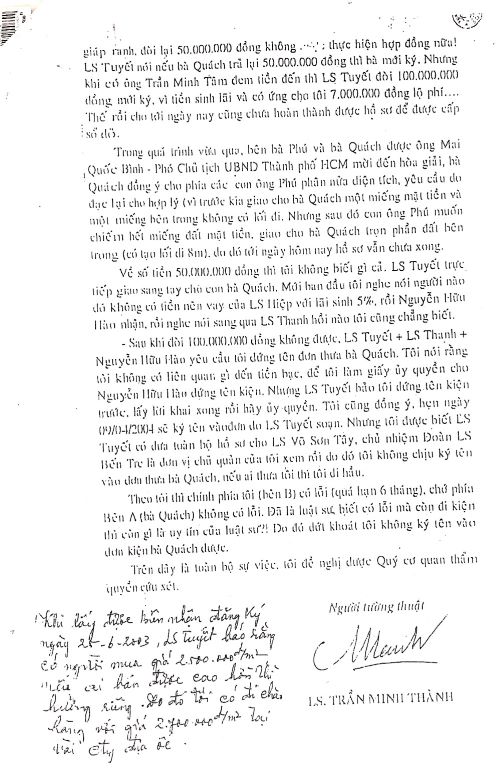 giáp ranh, đòi lại 50.000.000 đồng không thực hiện hợp đồng nữa!
LS Tuyết nói nếu bà Quách trả lại 50.000.000 đồng thì bà mới ký. Nhưng
khi có ông Trần Minh Tâm đem tiền đến thì LS Tuyết đòi 100.000.000
đồng mới ký, vì tiền sinh lãi và có ứng cho tôi 7.000.000 đồng lộ phí....
Thế rồi cho tới ngày nay cũng chưa hoàn thành được hồ sơ để được cấp
sổ đỏ.
Trong quá trình vừa qua, bên bà Phú và bà Quách được ông Mai
Quốc Bình - Phó Chủ tịch UBND Thành phố HCM mời đến hòa giải, bà
Quách đồng ý cho phía các con ông Phú phân nửa diện tích, yêu cầu đo
đạc lại cho hợp lý (vì trước kia giao cho bà Quách một miếng mặt tiền và
một miếng bên trong không có lối đi. Nhưng sau đó con ông Phú muốn
chiếm hết miếng đất mặt tiền, giao cho bà Quách trọn phần đất bên
trong (có tạo lối đi 8m), do đó tới ngày hôm nay hồ sơ vẫn chưa xong.
Về số tiền 50.000.000 đồng thì tôi không biết gì cả. LS Tuyết trực
tiếp giao sang tay cho con bà Quách. Mới ban đầu tôi nghe nói người nào
đó không có tiền nên vay của LS Hiệp với lãi sinh 5%, rồi Nguyễn Hữu
Hào nhận, rồi nghe nói sang qua LS Thanh hồi nào tôi cũng chẳng biết.
- Sau khi đòi 100.000.000 đồng không được, LS Tuyết + LS Thanh +
Nguyễn Hữu Hào yêu cầu tôi đứng tên đơn thưa bà Quách. Tôi nói rằng
tôi không có liên quan gì đến tiền bạc, để tôi làm giấy ủy quyền cho
Nguyễn Hữu Hào đứng tên kiện. Nhưng LS Tuyết bảo tôi đứng tên kiện
trước, lấy lời khai xong rồi hãy ủy quyền. Tôi cũng đồng ý, hẹn ngày
09/04/2004 sẽ ký tên vào đơn do LS Tuyết soạn. Nhưng tôi được biết LS
Tuyết có đưa toàn bộ hồ sơ cho LS Võ Sơn Tây, chủ nhiệm Đoàn LS
Bến Tre là đơn vị chủ quản của tôi xem rồi do đó tôi không chịu ký tên
vào đơn thưa bà Quách, nếu ai thưa tôi thì tôi đi hầu.
Theo tôi thì chính phía tôi (bên B) có lỗi (quá hạn 6 tháng), chứ phía
Bên A (bà Quách) không có lỗi. Đã là luật sư, biết có lỗi mà còn đi kiện
thì còn gì là uy tín của luật sư?! Do đó dứt khoát tôi không ký tên vào
đơn kiện bà Quách được.
Trên đây là toàn bộ sự việc, tôi đề nghị được Quý cơ quan thẩm
quyền cứu xét.
Người tường thuật
LS. TRẦN MINH THÀNH
Khi lấy được biên nhận đăng ký
ngày 25-6-2003, LS Tuyết báo rằng
có người mua giá 2.500.000đ/m2
nếu ai bán được cao hơn thì
hưởng riêng. Do đó tôi có đi chào
hàng với giá 2.700.000đ/m2 tại
vài cty địa ốc.